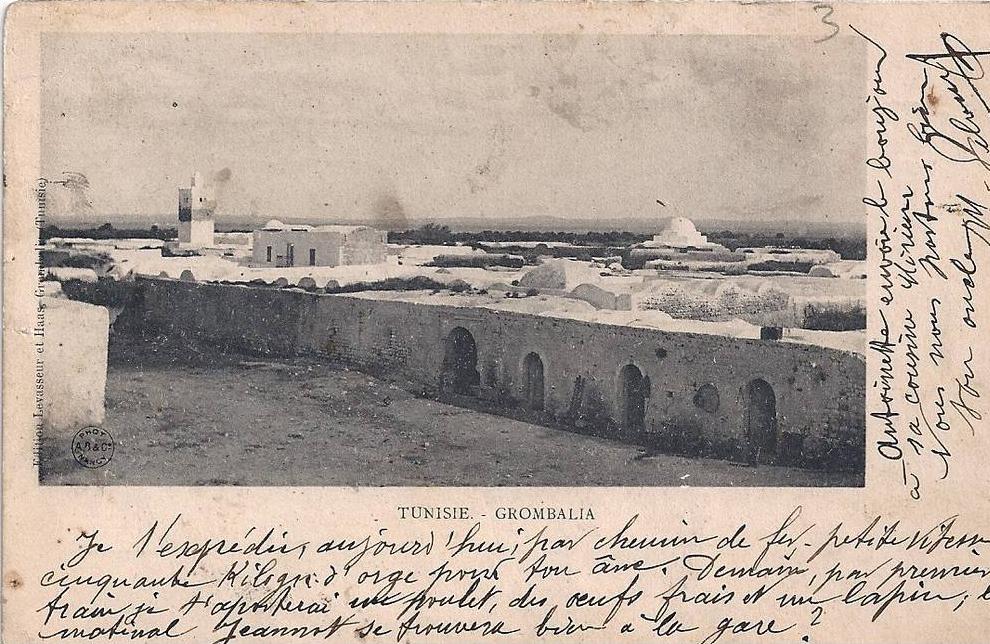 3
Edition Levasseur et Haas, (Tunisie)
PHOT
A.B & Cie
NANCY
TUNISIE. - GROMBALIA
Je t'expédie, aujourd'hui, par chemin de fer - petite vitesse
cinquante Kilogr. d'orge pour ton âne. Demain, par premier
train je t'apporterai un poulet, des œufs frais et un lapin; 
matinal Jeannot se trouvera bien à la gare?
Antoinette envoie le bonjour
à sa cousine
Nous nous portons bien
Ton oncle